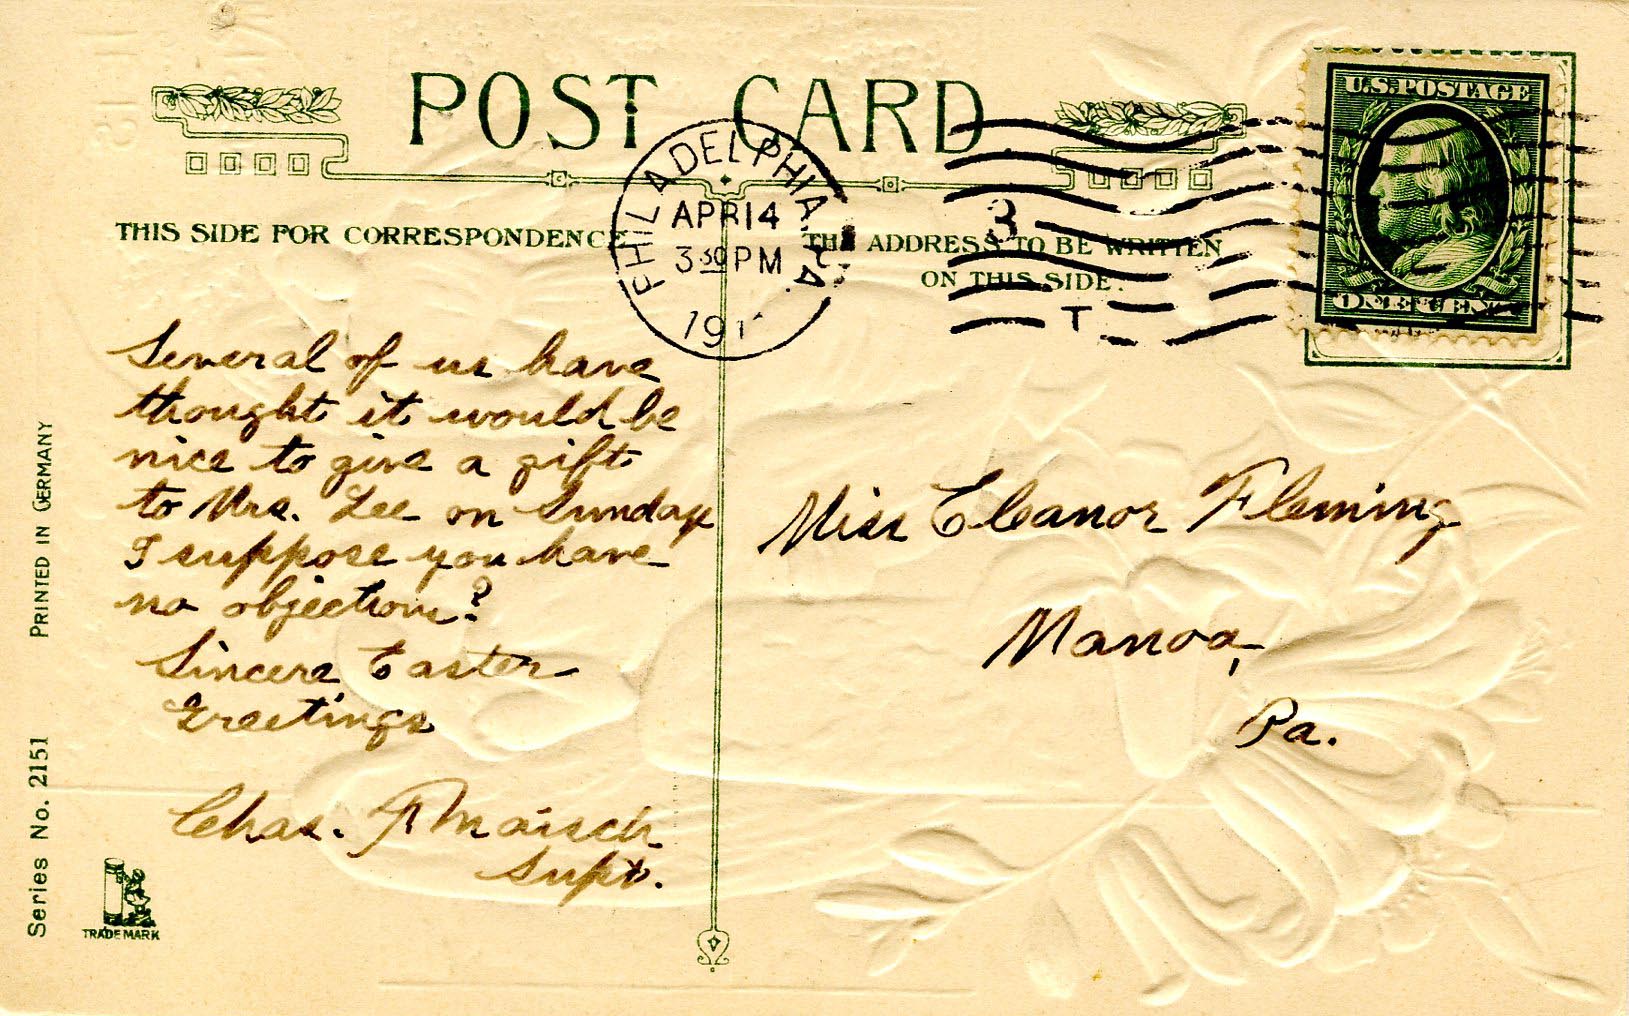 POST CARD
THIS SIDE FOR CORRESPONDENCE
THE ADDRESS TO BE WRITTEN
ON THIS SIDE.
PHILADELPHIA, PA.
APR 14
3 30 PM
191
3
T
U.S. POSTAGE
ONE CENT
Several of us have
thought it would be
nice to give a gift
to Mrs. Lee on Sunday
I suppose you have
no objections?
Sincere Easter
Greetings
Chas. F Maisch
Supt.
Miss Eleanor Fleming
Manoa,
Pa.
PRINTED IN GERMANY
Series No. 2151
TRADE MARK